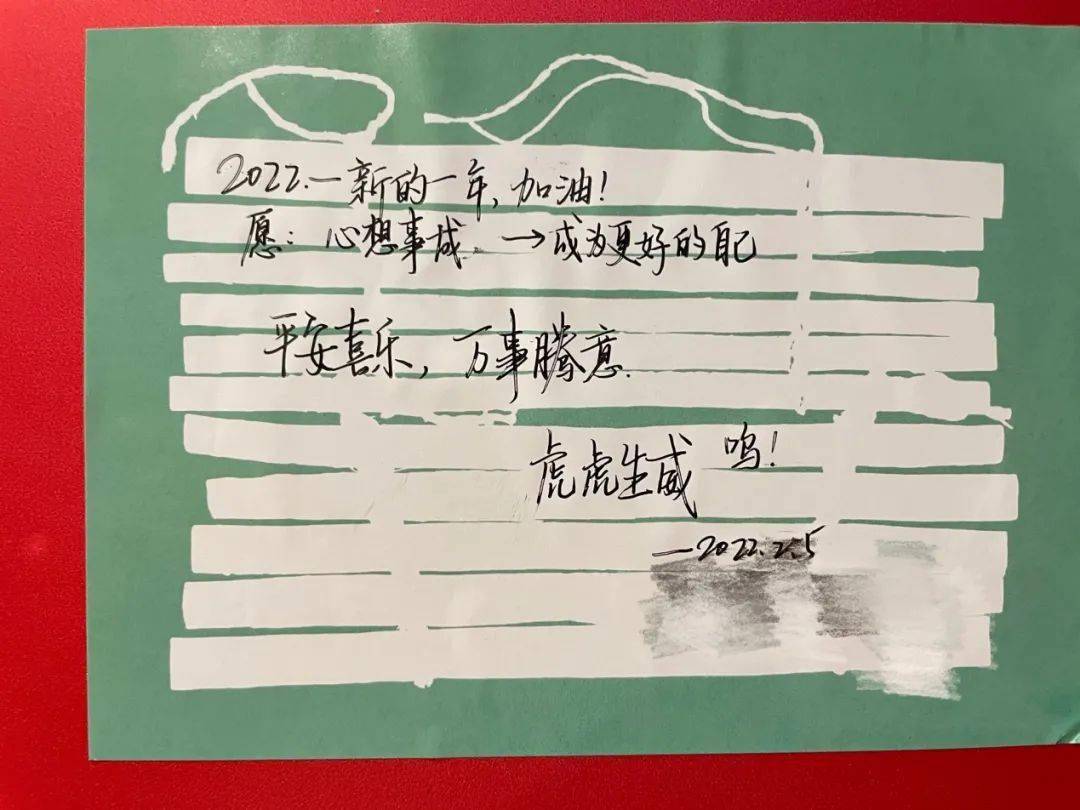 2022.一新的一年，加油！
愿：心想事成.→成为更好的自己
平安喜乐，万事腾意.
虎虎生威 鸣！
—2022.2.5